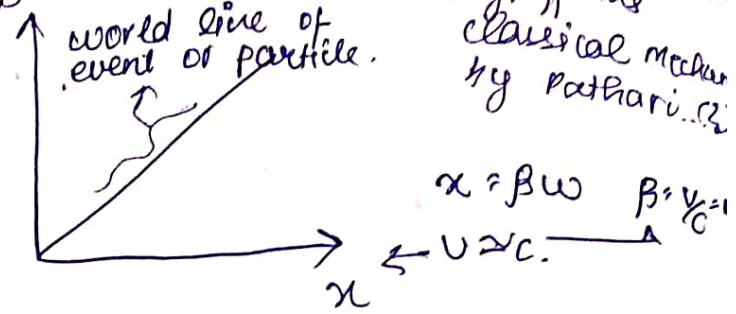 world line of
event or particle.
classical mechan
by Pathari
x = βω β = v/c =
← v ≃ c.
x